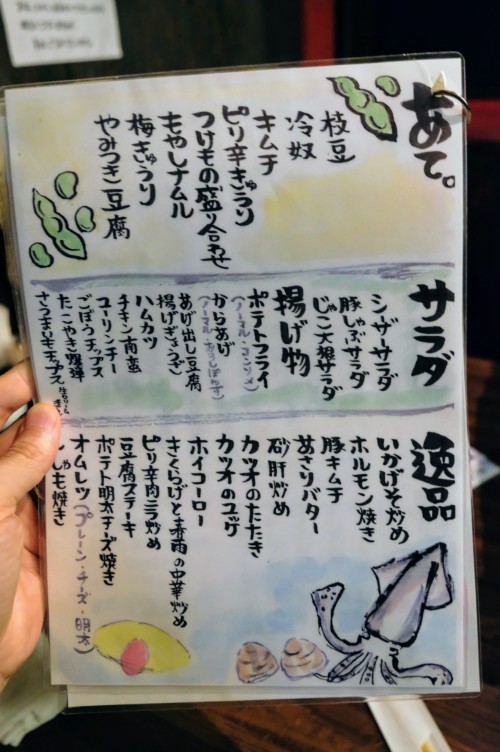 あて。
枝豆
冷奴
キムチ
ピリ辛きゅうり
つけもの盛り合わせ
もやしナムル
梅きゅうり
やみつき豆腐
サラダ
シーザーサラダ
豚しゃぶサラダ
じゃこ大根サラダ
揚げ物
ポテトフライ
(ノーマル・コンソメ)
からあげ
あげ出し豆腐
揚げぎょうざ
ハムカツ
チキン南蛮
ユーリンチー
ごぼうチップス
たこやき爆弾
さつまいもチップス
逸品
いかげそ炒め
ホルモン焼き
豚キムチ
あさりバター
砂肝炒め
カツオのたたき
カツオのユッケ
ホイコーロー
きくらげと春雨の中華炒め
ピリ辛肉ニラ炒め
豆腐ステーキ
ポテト明太チーズ焼き
オムレツ(プレーン・チーズ・明太)
ししゃも焼き